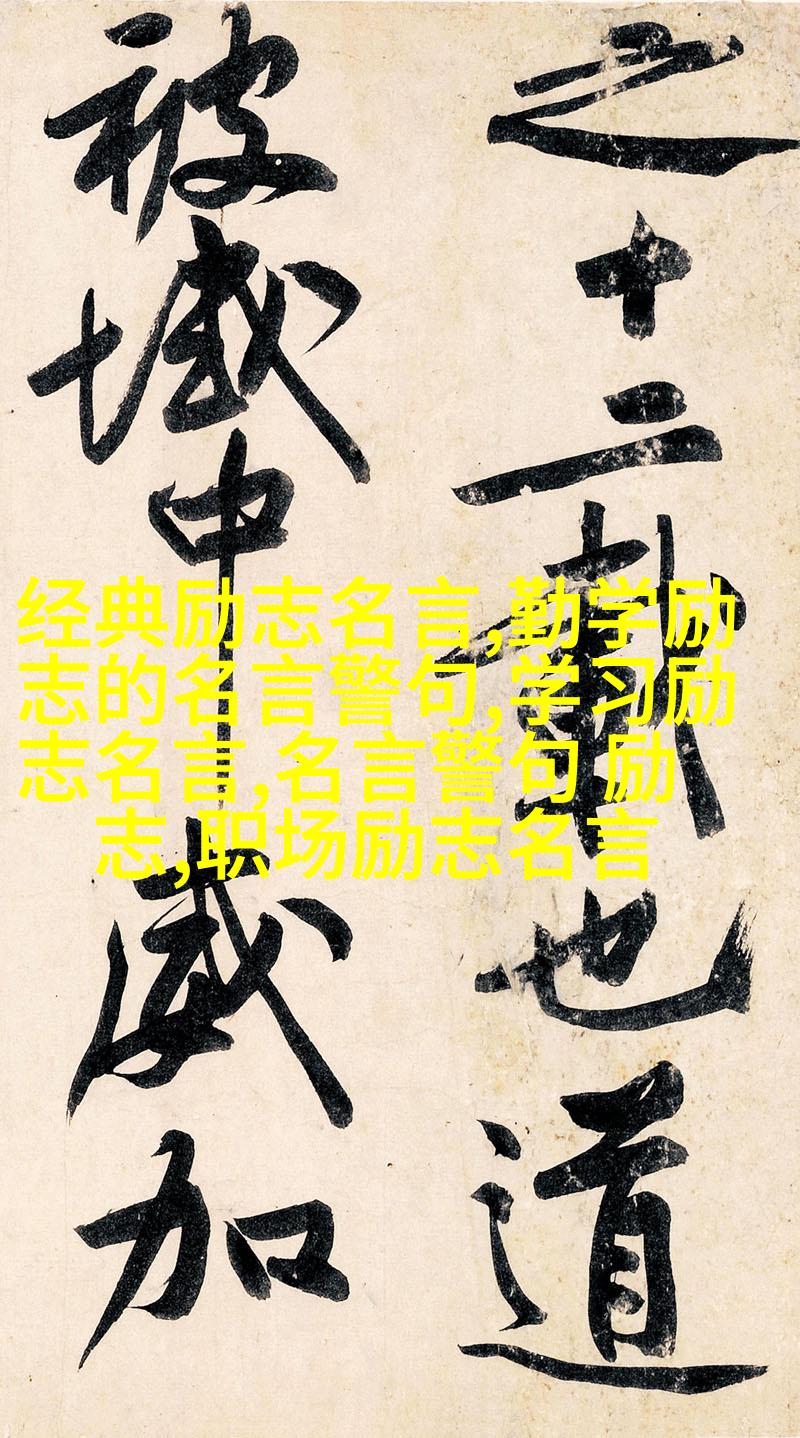 之十二載也道
被域中威加
经典励志名言,勤学励
志的名言警句,学习励
志名言,名言警句 励
志,职场励志名言